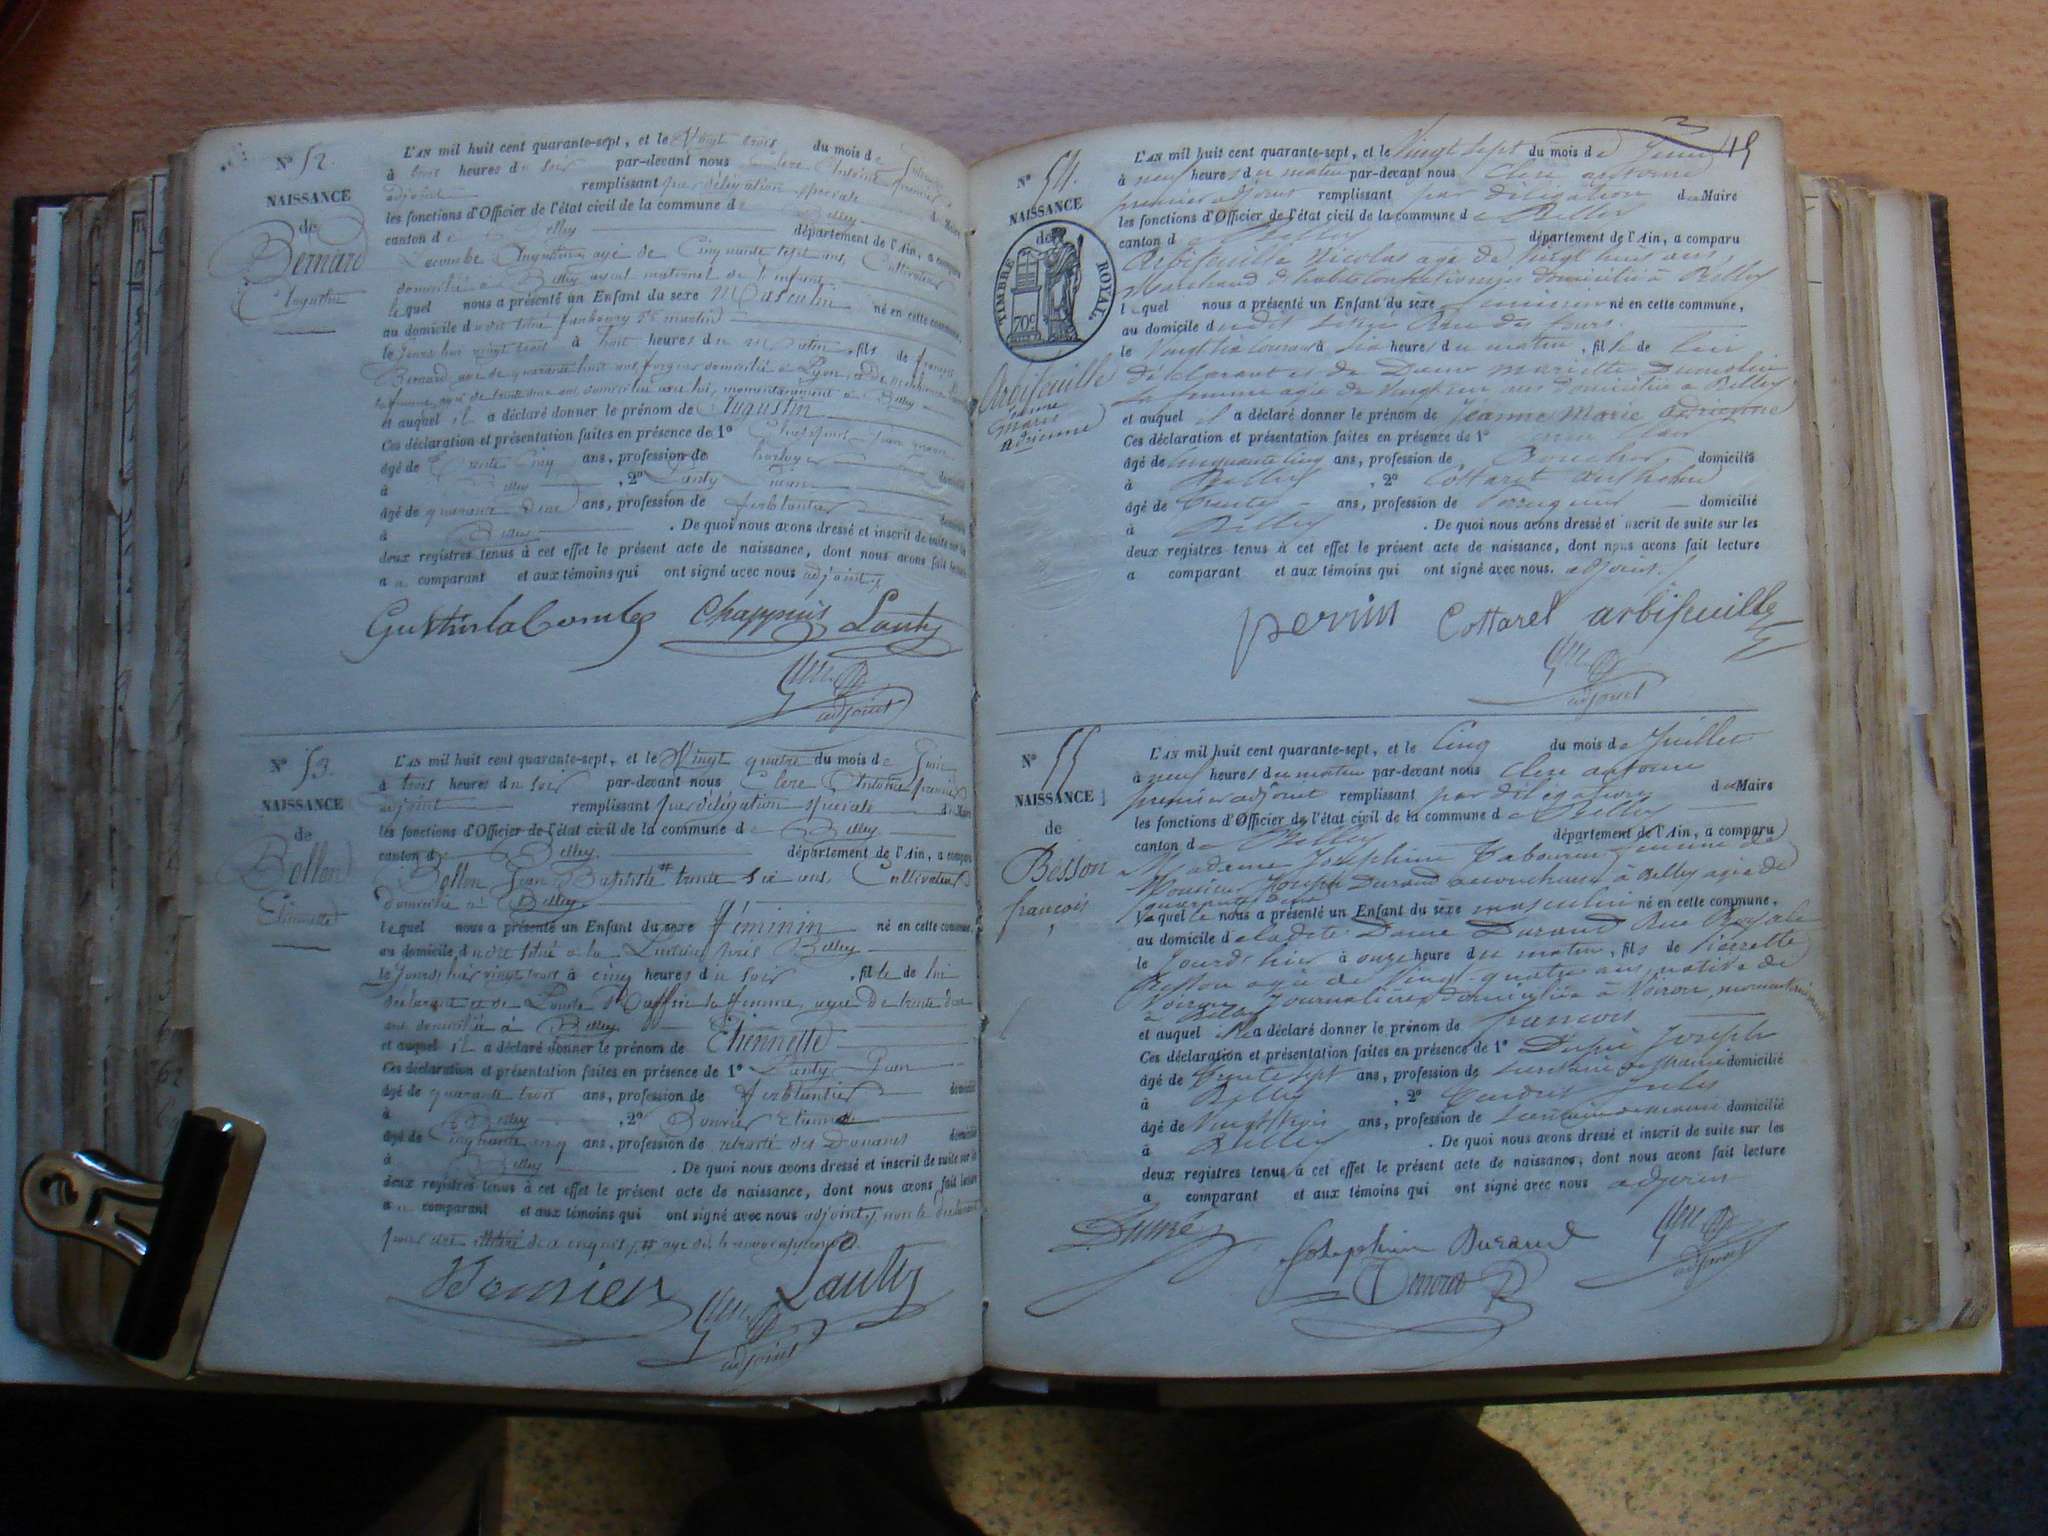 N° 52.
NAISSANCE
de
Bernard
Augustin
L'AN mil huit cent quarante-sept, et le Vingt trois du mois de
à trois heures du soir par-devant nous Clerc Antoine premier
adjoint remplissant par délégation spéciale du Maire
les fonctions d'Officier de l'état civil de la commune de Belley
canton de Belley département de l'Ain, a comparu
Lacombe Augustin agé de Cinquante sept ans, Cultivateur
domicilié à Belley ayeul maternel de l'enfant
lequel nous a présenté un Enfant du sexe Masculin né en cette commune,
au domicile dudit situé faubourg St martin
le Jourd'hui vingt trois à huit heures du Matin, fils de françois
Bernard, agé de quarante huit ans, domicilié à Lyon, et de
sa femme, agée de trente ans domiciliée avec lui, momentanément à Belley
et auquel il a déclaré donner le prénom de Augustin
Ces déclaration et présentation faites en présence de 1° Chappuis
âgé de trente Cinq ans, profession de horloger domicilié
à Belley, 2° Lanty Jean
âgé de quarante deux ans, profession de ferblantier domicilié
à Belley. De quoi nous avons dressé et inscrit de suite sur les
deux registres tenus à cet effet le présent acte de naissance, dont nous avons fait lecture
au comparant et aux témoins qui ont signé avec nous adjoint.
Chappuis Lanty
adjoint
N° 53.
NAISSANCE
de
Bollon
Etiennette
L'AN mil huit cent quarante-sept, et le Vingt quatre du mois de Juin
à trois heures du soir par-devant nous Clerc Antoine premier
adjoint remplissant par délégation spéciale du Maire
les fonctions d'Officier de l'état civil de la commune de Belley
canton de Belley département de l'Ain, a comparu
Bollon Jean Baptiste trente six ans, Cultivateur
domicilié à Belley
lequel nous a présenté un Enfant du sexe féminin né en cette commune,
au domicile dudit situé à la près Belley
le Jourd'hier vingt trois à cinq heures du soir, fille de lui
déclarant et de Louise sa femme, agée de trente deux
ans domiciliée à Belley
et auquel il a déclaré donner le prénom de Etiennette
Ces déclaration et présentation faites en présence de 1° Lanty Jean
âgé de quarante trois ans, profession de ferblantier domicilié
à Belley, 2° Etienne
âgé de Cinquante cinq ans, profession de retraité des Douanes domicilié
à Belley. De quoi nous avons dressé et inscrit de suite sur les
deux registres tenus à cet effet le présent acte de naissance, dont nous avons fait lecture
au comparant et aux témoins qui ont signé avec nous adjoint, non le déclarant
pour être illitéré de ce enquis
Lanty
adjoint
15
N° 54.
NAISSANCE
de
TIMBRE ROYAL
70c
Arbifeuille
Jeanne
Marie
adrienne
L'AN mil huit cent quarante-sept, et le Vingt sept du mois de Juin
à neuf heures du matin par-devant nous Clerc antoine
premier adjoint remplissant par délégation du Maire
les fonctions d'Officier de l'état civil de la commune de Belley
canton de Belley département de l'Ain, a comparu
Arbifeuille Nicolas agé de Vingt huit ans,
Marchand d'habits confectionnés domicilié à Belley
lequel nous a présenté un Enfant du sexe feminin né en cette commune,
au domicile dudit Rue des tours.
le Vingt six courant à six heures du matin, fille de lui
déclarant et de Dame Mariette Dumolin
sa femme agée de Vingt ans domiciliée à Belley
et auquel il a déclaré donner le prénom de Jeanne Marie adrienne
Ces déclaration et présentation faites en présence de 1°
âgé de Cinquante cinq ans, profession de Boucher domicilié
à Belley, 2° Cottaret anthelme
âgé de trente ans, profession de perruquier domicilié
à Belley. De quoi nous avons dressé et inscrit de suite sur les
deux registres tenus à cet effet le présent acte de naissance, dont nous avons fait lecture
au comparant et aux témoins qui ont signé avec nous. adjoint.
perrin Cottarel arbifeuille
adjoint
N° 55
NAISSANCE
de
Besson
françois
L'AN mil huit cent quarante-sept, et le Cinq du mois de Juillet
à neuf heures du matin par-devant nous Clerc antoine
premier adjoint remplissant par délégation du Maire
les fonctions d'Officier de l'état civil de la commune de Belley
canton de Belley département de l'Ain, a comparu
Madame Josephine Tabourin femme de
Monsieur Joseph Durand accoucheuse à Belley agée de
quarante deux
laquelle nous a présenté un Enfant du sexe masculin né en cette commune,
au domicile de ladite Dame Durand Rue Royale
le Jourd'hier à onze heure du matin, fils de Pierrette
Besson agée de Vingt quatre ans, native de
Voiron, Journalière, domiciliée à Voiron, momentanément
à Belley
et auquel elle a déclaré donner le prénom de françois
Ces déclaration et présentation faites en présence de 1° Joseph
âgé de trente sept ans, profession de secrétaire de Mairie domicilié
à Belley, 2° Jules
âgé de Vingt trois ans, profession de secrétaire de mairie domicilié
à Belley. De quoi nous avons dressé et inscrit de suite sur les
deux registres tenus à cet effet le présent acte de naissance, dont nous avons fait lecture
a comparant et aux témoins qui ont signé avec nous adjoint
Josephine Durand
adjoint